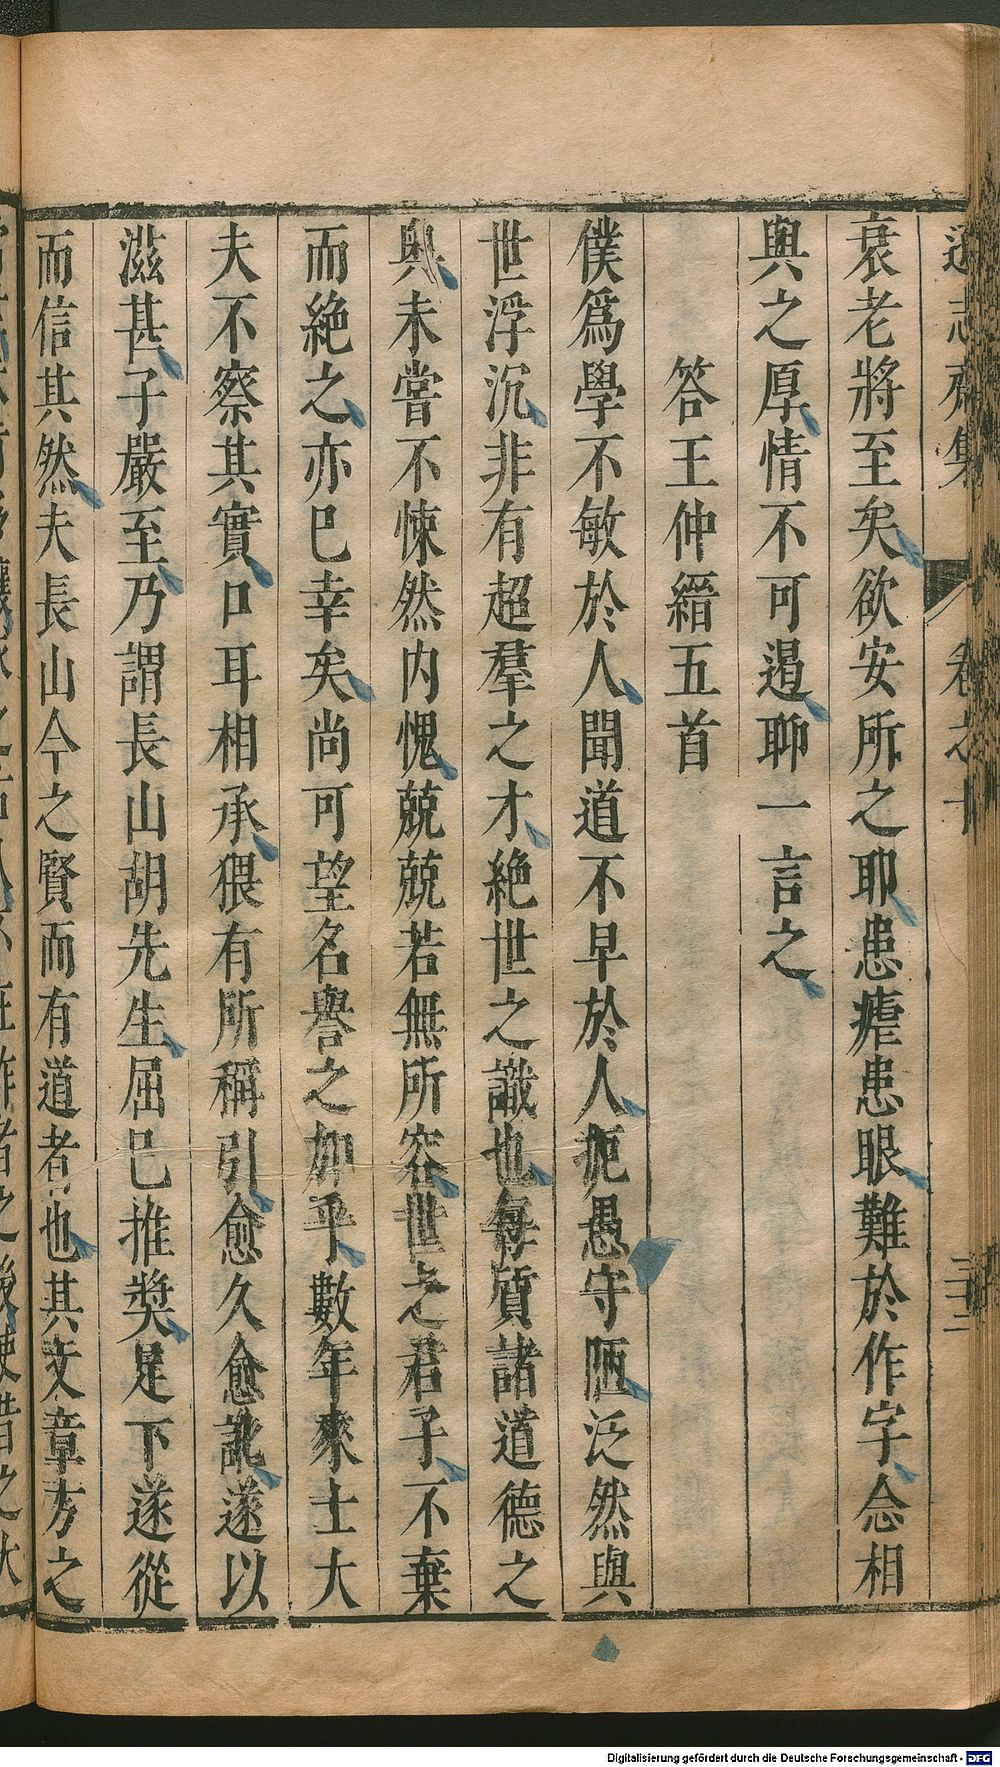 遜志齋集 卷之十 三十二
衰老將至矣欲安所之耶患瘧患眼難於作字念相
與之厚情不可遏聊一言之
答王仲縉五首
僕爲學不敏於人聞道不早於人扼愚守陋泛然與
世浮沉非有超羣之才絶世之識也每質諸道德之
奧未嘗不悚然内愧兢兢若無所容世之君子不棄
而絶之亦已幸矣尚可望名譽之加乎數年來士大
夫不察其實口耳相承猥有所稱引愈久愈訛遂以
滋甚子嚴至乃謂長山胡先生屈已推奬足下遂從
而信其然夫長山今之賢而有道者也其文章方之
Digitalisierung gefördert durch die Deutsche Forschungsgemeinschaft - DFG